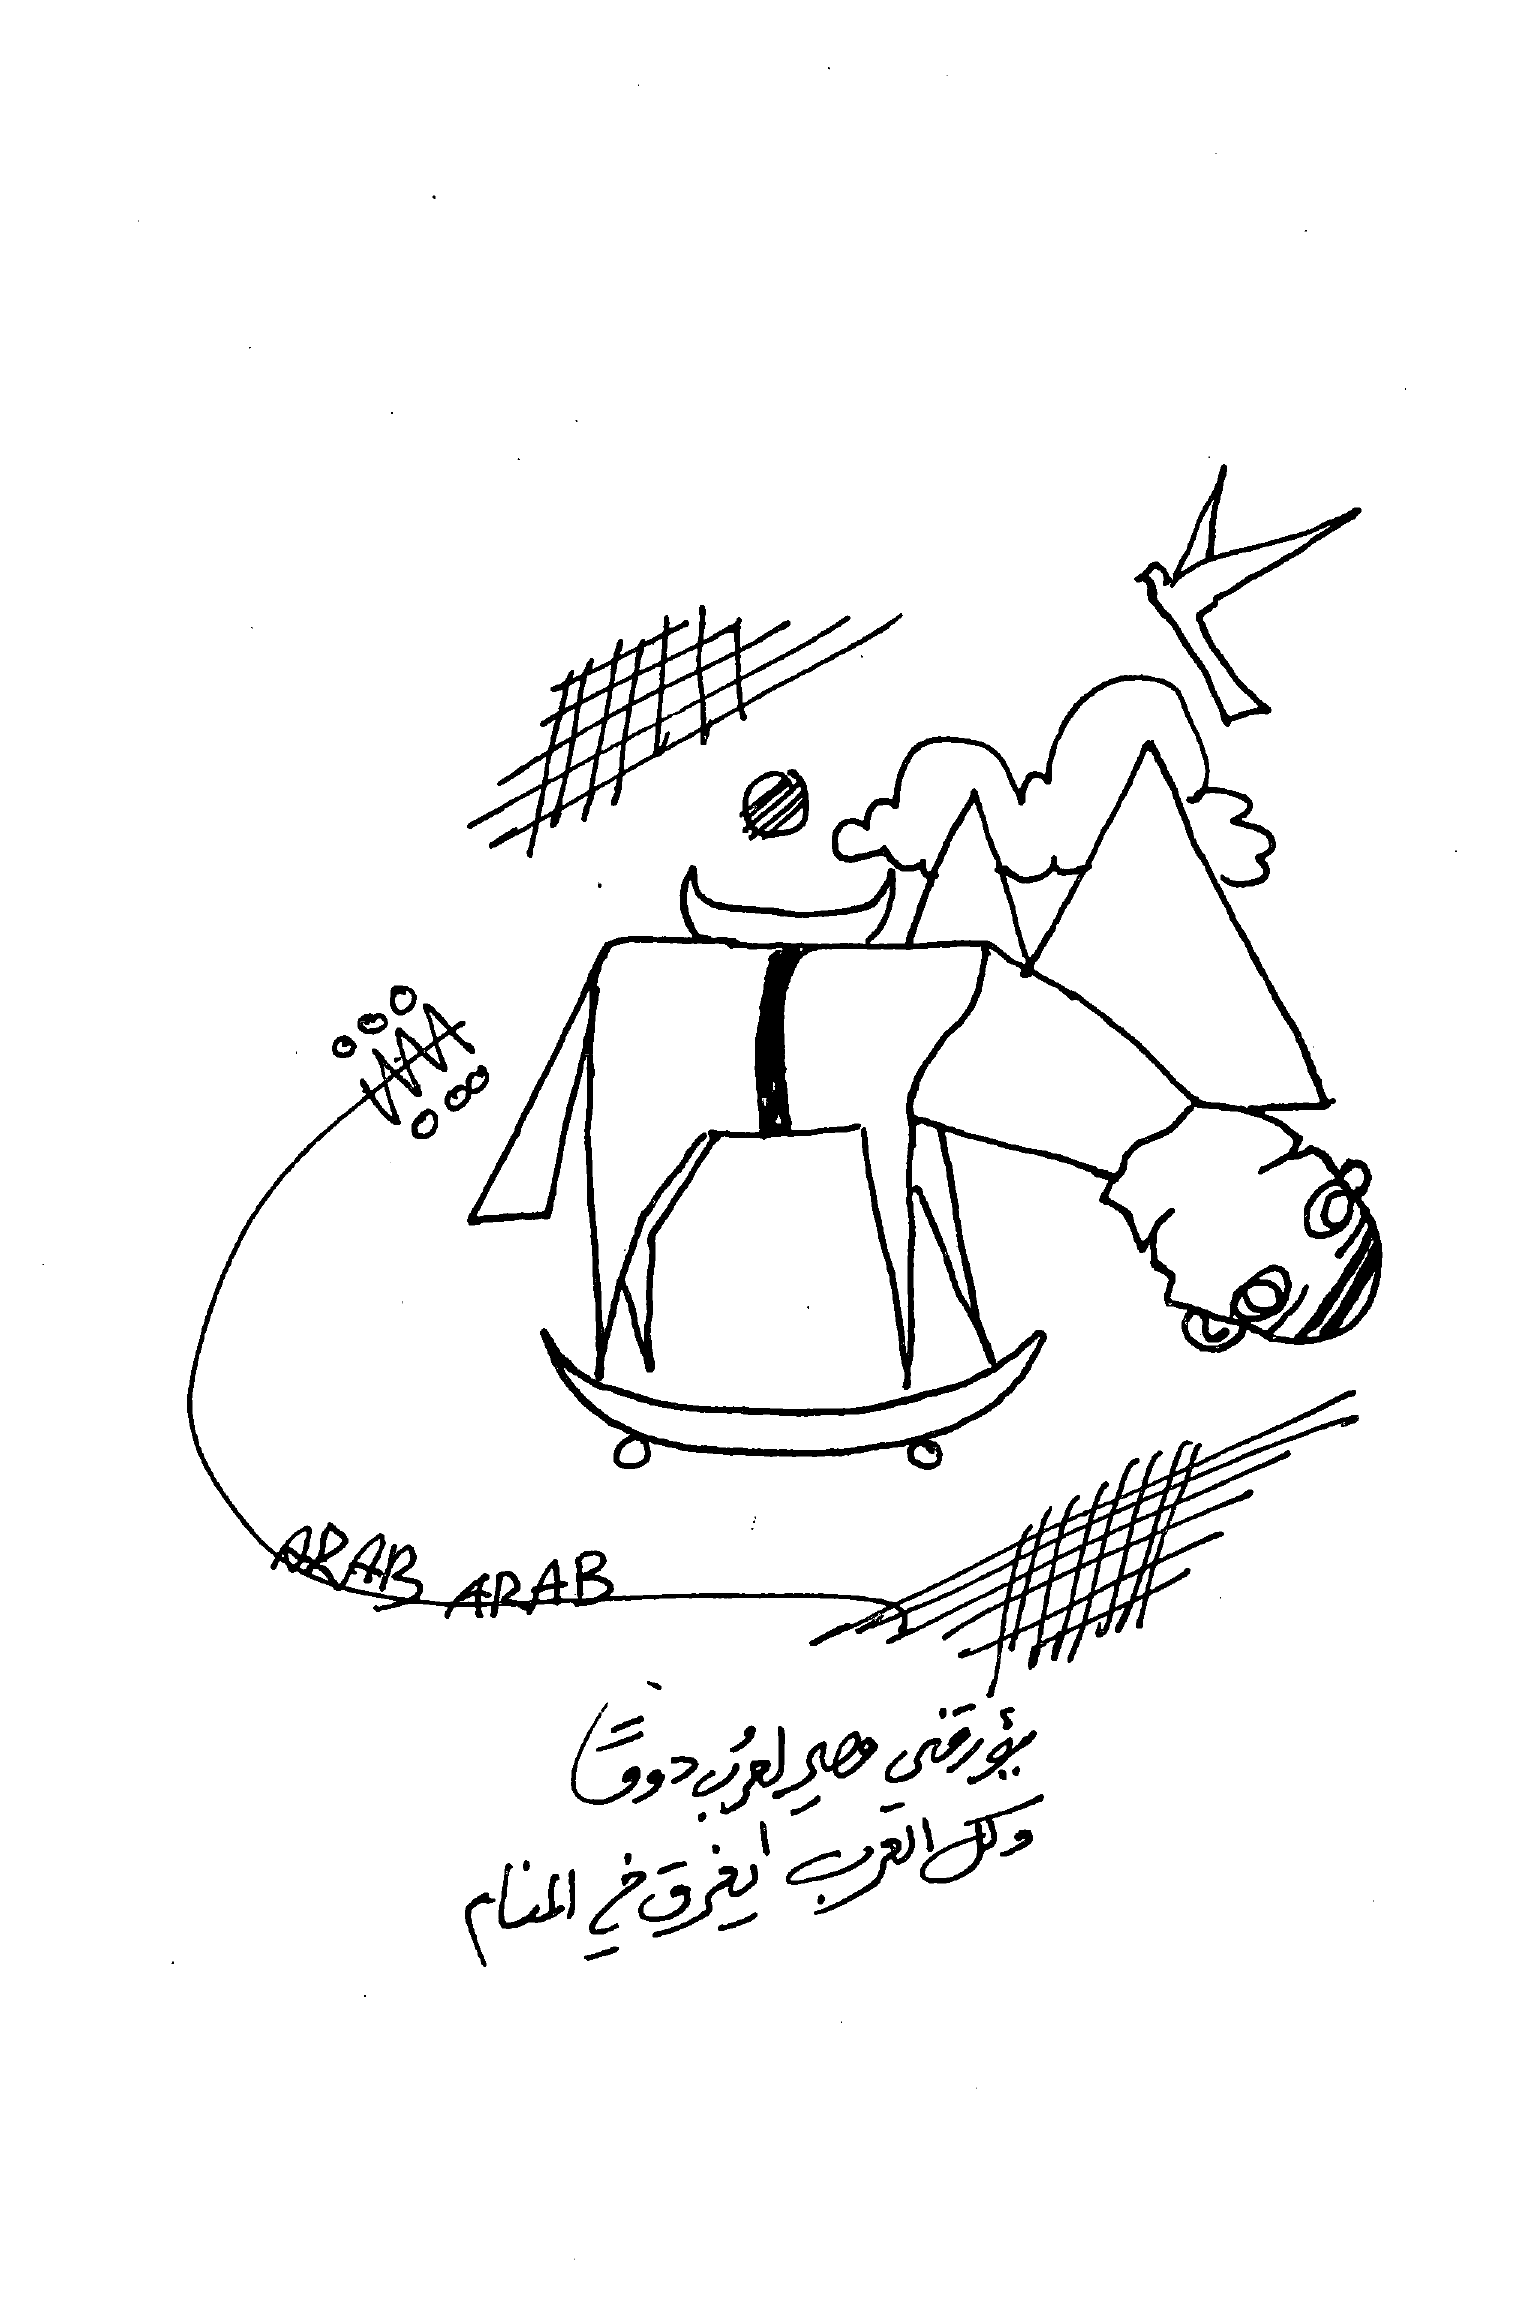 ARAB ARAB
يؤرقني لعرب
وكل العرب يغرق في المنام